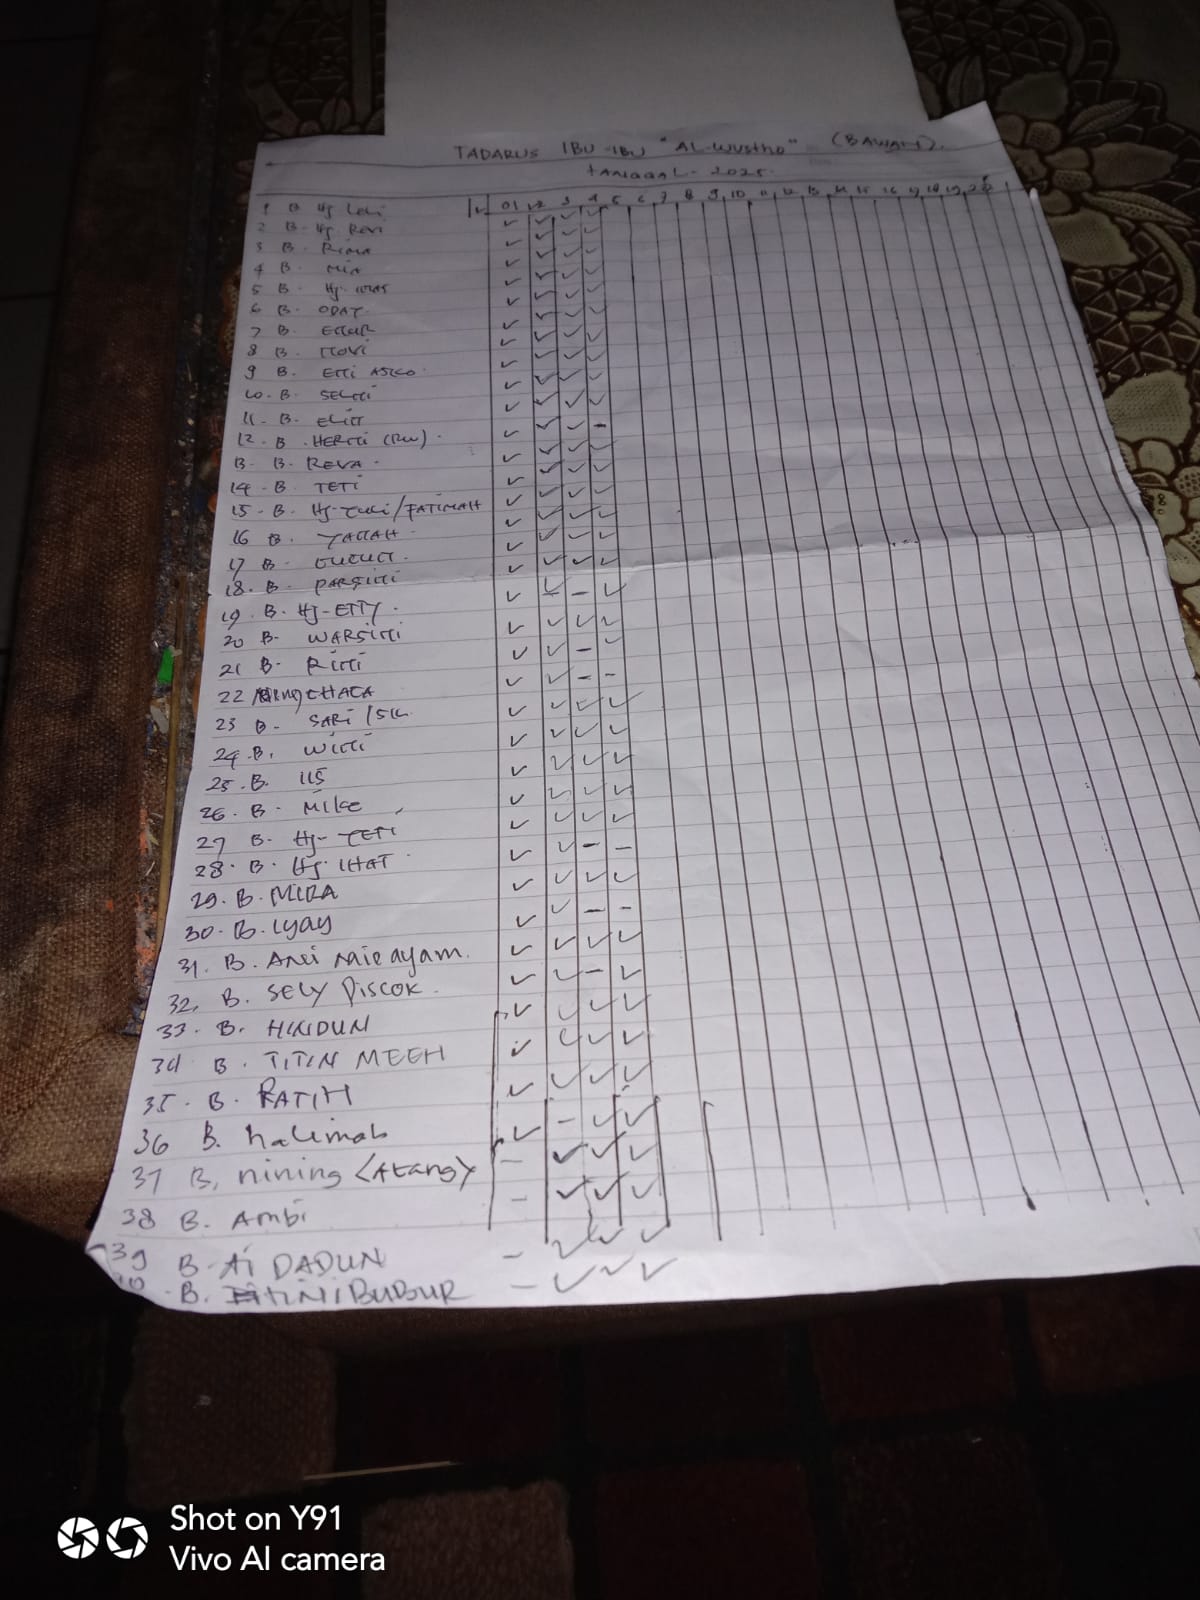 TADARUS IBU-IBU "AL-Wustho" (BAWAH).
TANGGAL - 2025.
01 2 3 4 5 6 7 8 9 10 11 12 13 14 15 16 17 18 19 20
1 B Hj
2 B- Hj. Revi
3 B. Rima
4 B. Mia
5 B. Hj.
6 B. ODAY
7 B.
8 B. Novi
9 B. ENi
10. B.
11. B.
12. B. HERNi (RW).
13. B. REVA.
14. B. TETi
15. B. Hj- /FATIMAH
16 B.
17 B.
18. B. PARSiNi
19. B. Hj-ETTY.
20 B- WARSiNi
21 B- RiNi
22 CHACA
23 B- SARi
24. B. WiNi
25. B. IIS
26. B. Mike
27 B. Hj- TETi
28. B. Hj. IHAT
29. B. MIRA
30. B. Iyay
31. B. Ani Mie ayam.
32. B. SELY PISCOK.
33. B. HINDUN
34 B. TITIN MEEH
35. B. RATIH
36 B. halimah
37 B. nining (Atang)
38 B. Ambi
39 B Ai DADUN
B. BUBUR
Shot on Y91
Vivo AI camera